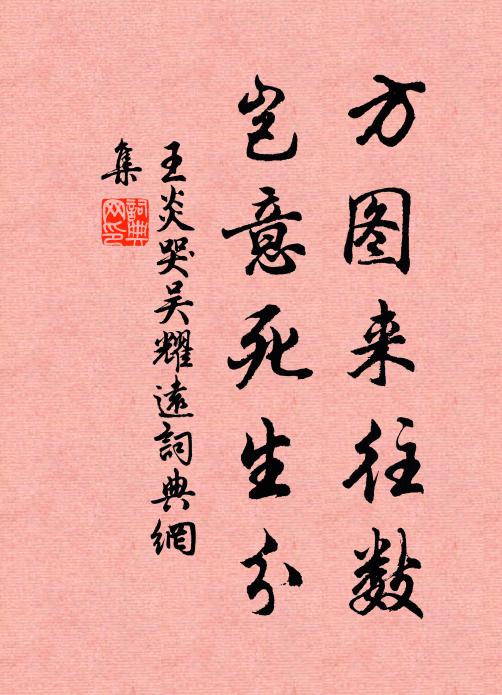 方图来往数
岂意死生分
王炎哭吴耀遠詞典網
集
詞典
网印